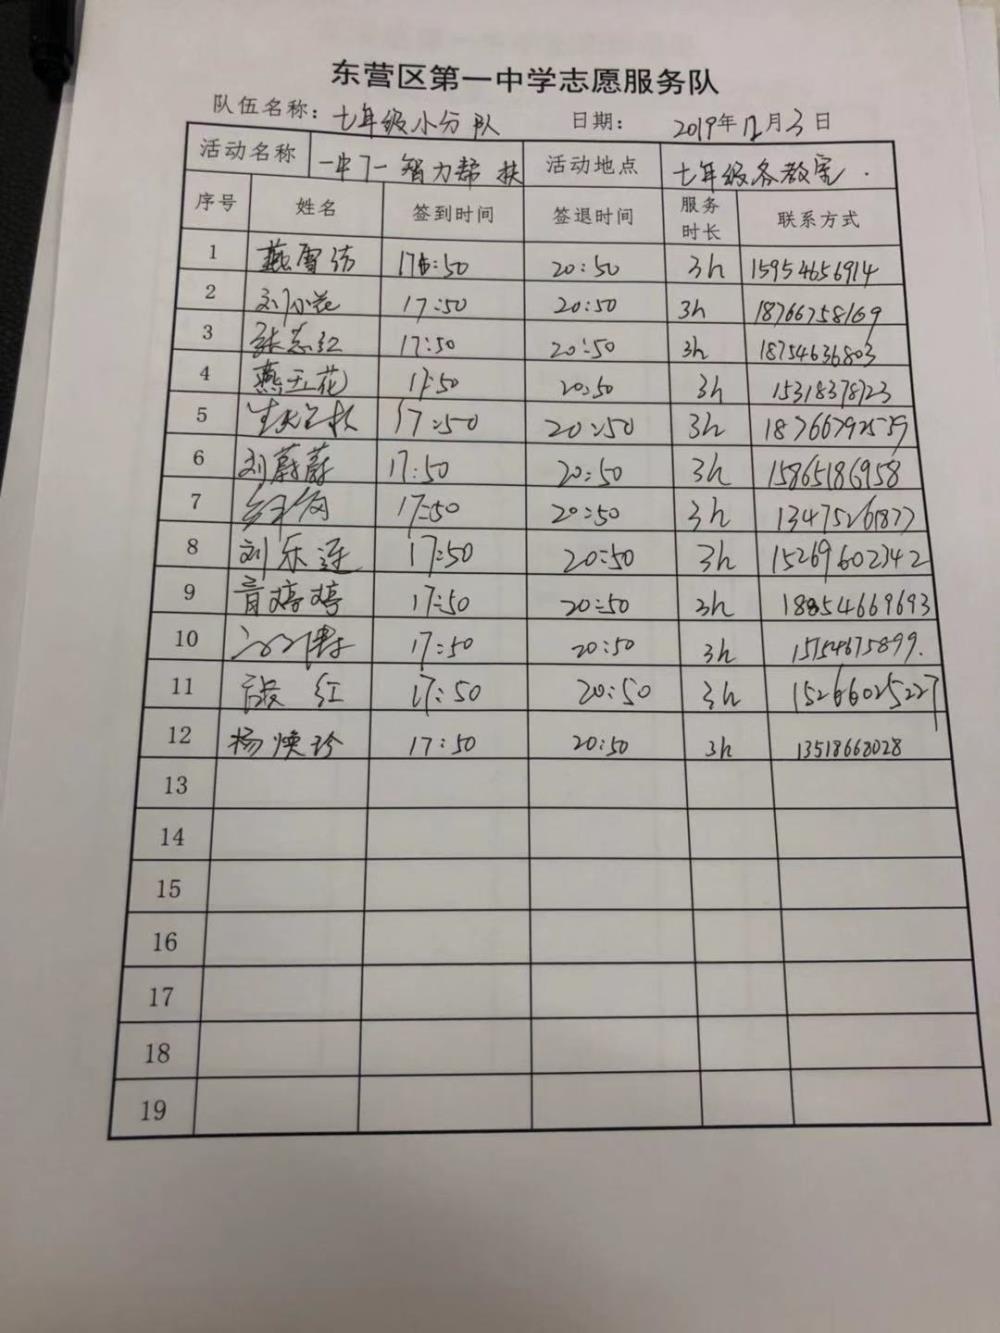 东营区第一中学志愿服务队
队伍名称：七年级小分队 日期： 2019年12月3日
活动名称 活动地点 七年级各教室.
序号 姓名 签到时间 签退时间 服务时长 联系方式
1 燕雪 :50 20:50 3h 15954656914
2 刘小花 17:50 20:50 3h 18766758169
3 张志红 17:50 20:50 3h 18754636803
4 燕玉花 17:50 20:50 3h 15318378123
5 17:50 20:50 3h 18766792559
6 刘蔚蔚 17:50 20:50 3h 15865186958
7 17:50 20:50 3h 13475261877
8 刘乐莲 17:50 20:50 3h 15269602342
9 婷婷 17:50 20:50 3h 18854669693
10 17:50 20:50 3h 15154675899.
11 红 17:50 20:50 3h 15266025227
12 杨焕珍 17:50 20:50 3h 13518668028
13
14
15
16
17
18
19